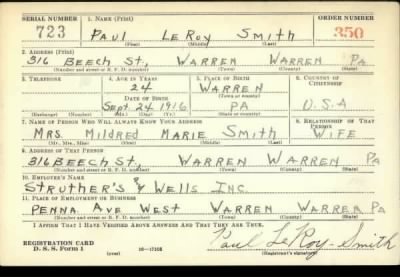 SERIAL NUMBER 1. NAME (Print) ORDER NUMBER
723 PAUL LEROY SMITH 350
(First) (Middle) (Last)
2. ADDRESS (Print)
316 BEECH ST., WARREN WARREN PA
(Number and street or R. F. D. number) (Town) (County) (State)
3. TELEPHONE 4. AGE IN YEARS 5. PLACE OF BIRTH 6. COUNTRY OF CITIZENSHIP
24 WARREN
DATE OF BIRTH (Town or county)
Sept. 24 1916 PA U.S.A
(Exchange) (Number) (Mo.) (Day) (Yr.) (State or country)
7. NAME OF PERSON WHO WILL ALWAYS KNOW YOUR ADDRESS 8. RELATIONSHIP OF THAT PERSON
MRS. Mildred MARIE SMITH WIFE
(Mr., Mrs., Miss) (First) (Middle) (Last)
9. ADDRESS OF THAT PERSON
316 BEECH ST, WARREN WARREN PA
(Number and street or R. F. D. number) (Town) (County) (State)
10. EMPLOYER'S NAME
STRUTHER'S & WELLS INC.
11. PLACE OF EMPLOYMENT OR BUSINESS
PENNA AVE WEST WARREN WARREN PA
(Number and street or R. F. D. number) (Town) (County) (State)
I AFFIRM THAT I HAVE VERIFIED ABOVE ANSWERS AND THAT THEY ARE TRUE.
REGISTRATION CARD Paul LeRoy Smith
D. S. S. Form 1 (over) (Registrant's signature)